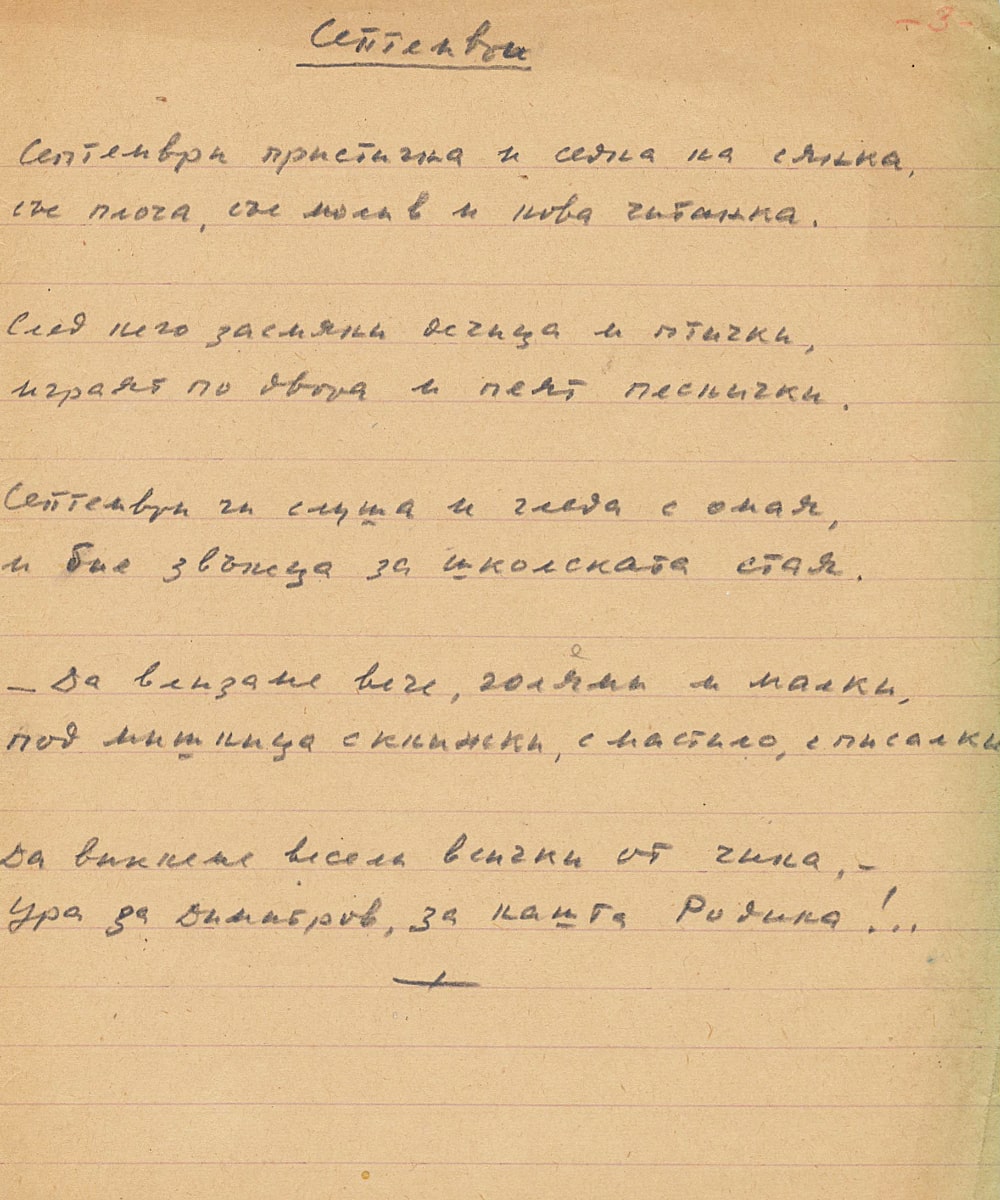 - 3 -
Септември
Септември пристигна и седна на сянка,
със плоча, със молив и нова читанка.
След него засмяни дечица и птички,
играят по двора и пеят песнички.
Септември ги слуша и гледа с омая,
и бие звънеца за школската стая.
е
– Да влизаме вече, голями и малки,
под мишница с книжки, с мастило, с писалки
Да викнеме весели всички от чина, –
Ура за Димитров, за нашта Родина!..